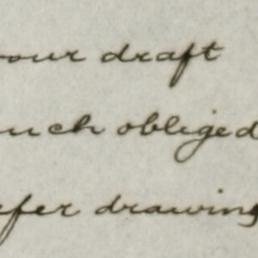 our draft
uch obliged
efer drawing